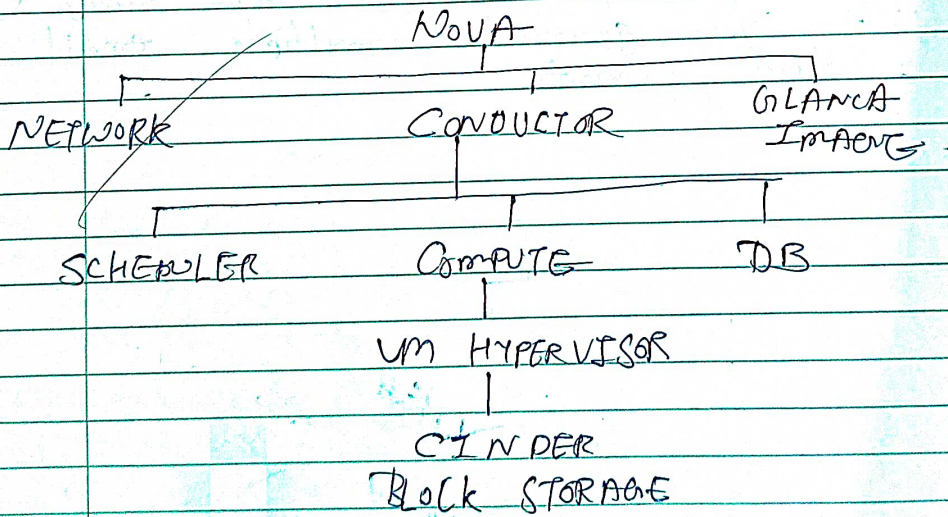 NOVA
NETWORK CONDUCTOR GLANCA
IMAGNG
SCHEDULER COMPUTE DB
VM HYPERVISOR
CINDER
BLOCK STORAGE